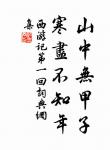 山中無甲子
寒盡不知年
西游記第一回詞典網
集